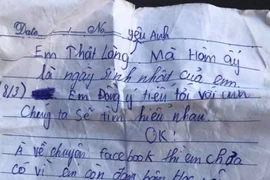 Date / No yếu Anh
Em Thật Lòng, Mà Hôm ấy
là ngày Sinh nhật của em
8/3) Em Đồng ý tiến tới với anh
Chúng ta Sẽ tìm hiểu nhau
OK!
À về chuyện facebook thì em chưa
có vì em còn đang học